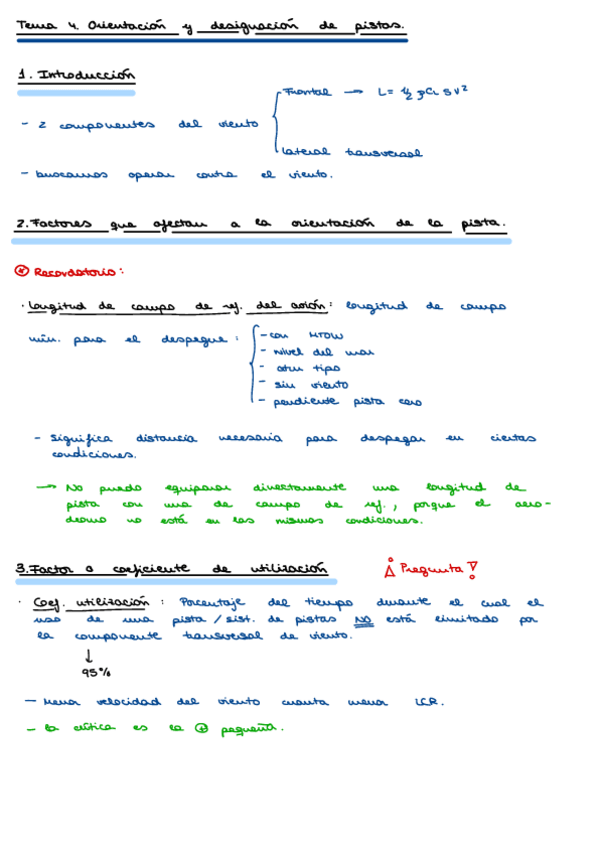 Tema 4. Orientación y designación de pistas.
1. Introducción
Frontal → L = ½ ρ CL S V²
- 2 componentes del viento
lateral transversal
- buscamos operar contra el viento.
2. Factores que afectan a la orientación de la pista.
Recordatorio:
· Longitud de campo de ref. del avión: longitud de campo
mín. para el despegue:
- con MTOW
- nivel del mar
- atm tipo
- sin viento
- pendiente pista cero
- Significa distancia necesaria para despegar en ciertas
condiciones.
→ No puedo equiparar directamente una longitud de
pista con una de campo de ref., porque el aero-
dromo no está en las mismas condiciones.
3. Factor o coeficiente de utilización
¡ Pregunta !
· Coef. utilización : Porcentaje del tiempo durante el cual el
uso de una pista / sist. de pistas NO está limitado por
la componente transversal de viento.
↓
95%
- Menor velocidad del viento cuanta menor LCR.
- la crítica es la + pequeña.